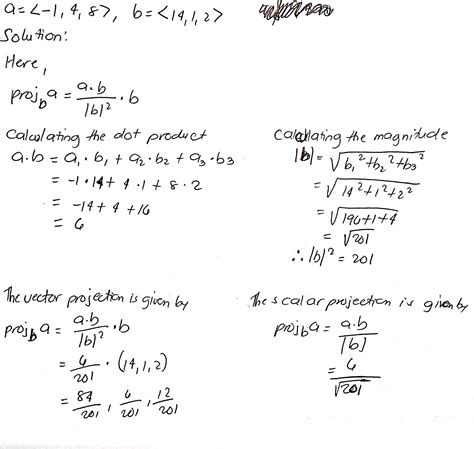 a = <-1, 4, 8>, b = <14, 1, 2>
Solution:
Here,
proj_b a = a.b / |b|² · b
Calculating the dot product
a.b = a₁ · b₁ + a₂ · b₂ + a₃ · b₃
= -1 · 14 + 4 · 1 + 8 · 2
= -14 + 4 + 16
= 6
Calculating the magnitude
|b| = √(b₁² + b₂² + b₃²)
= √(14² + 1² + 2²)
= √(196 + 1 + 4)
= √201
∴ |b|² = 201
The vector projection is given by
proj_b a = a.b / |b|² · b
= 6/201 · (14, 1, 2)
= 84/201, 6/201, 12/201
The scalar projection is given by
proj_b a = a.b / |b|
= 6/√201